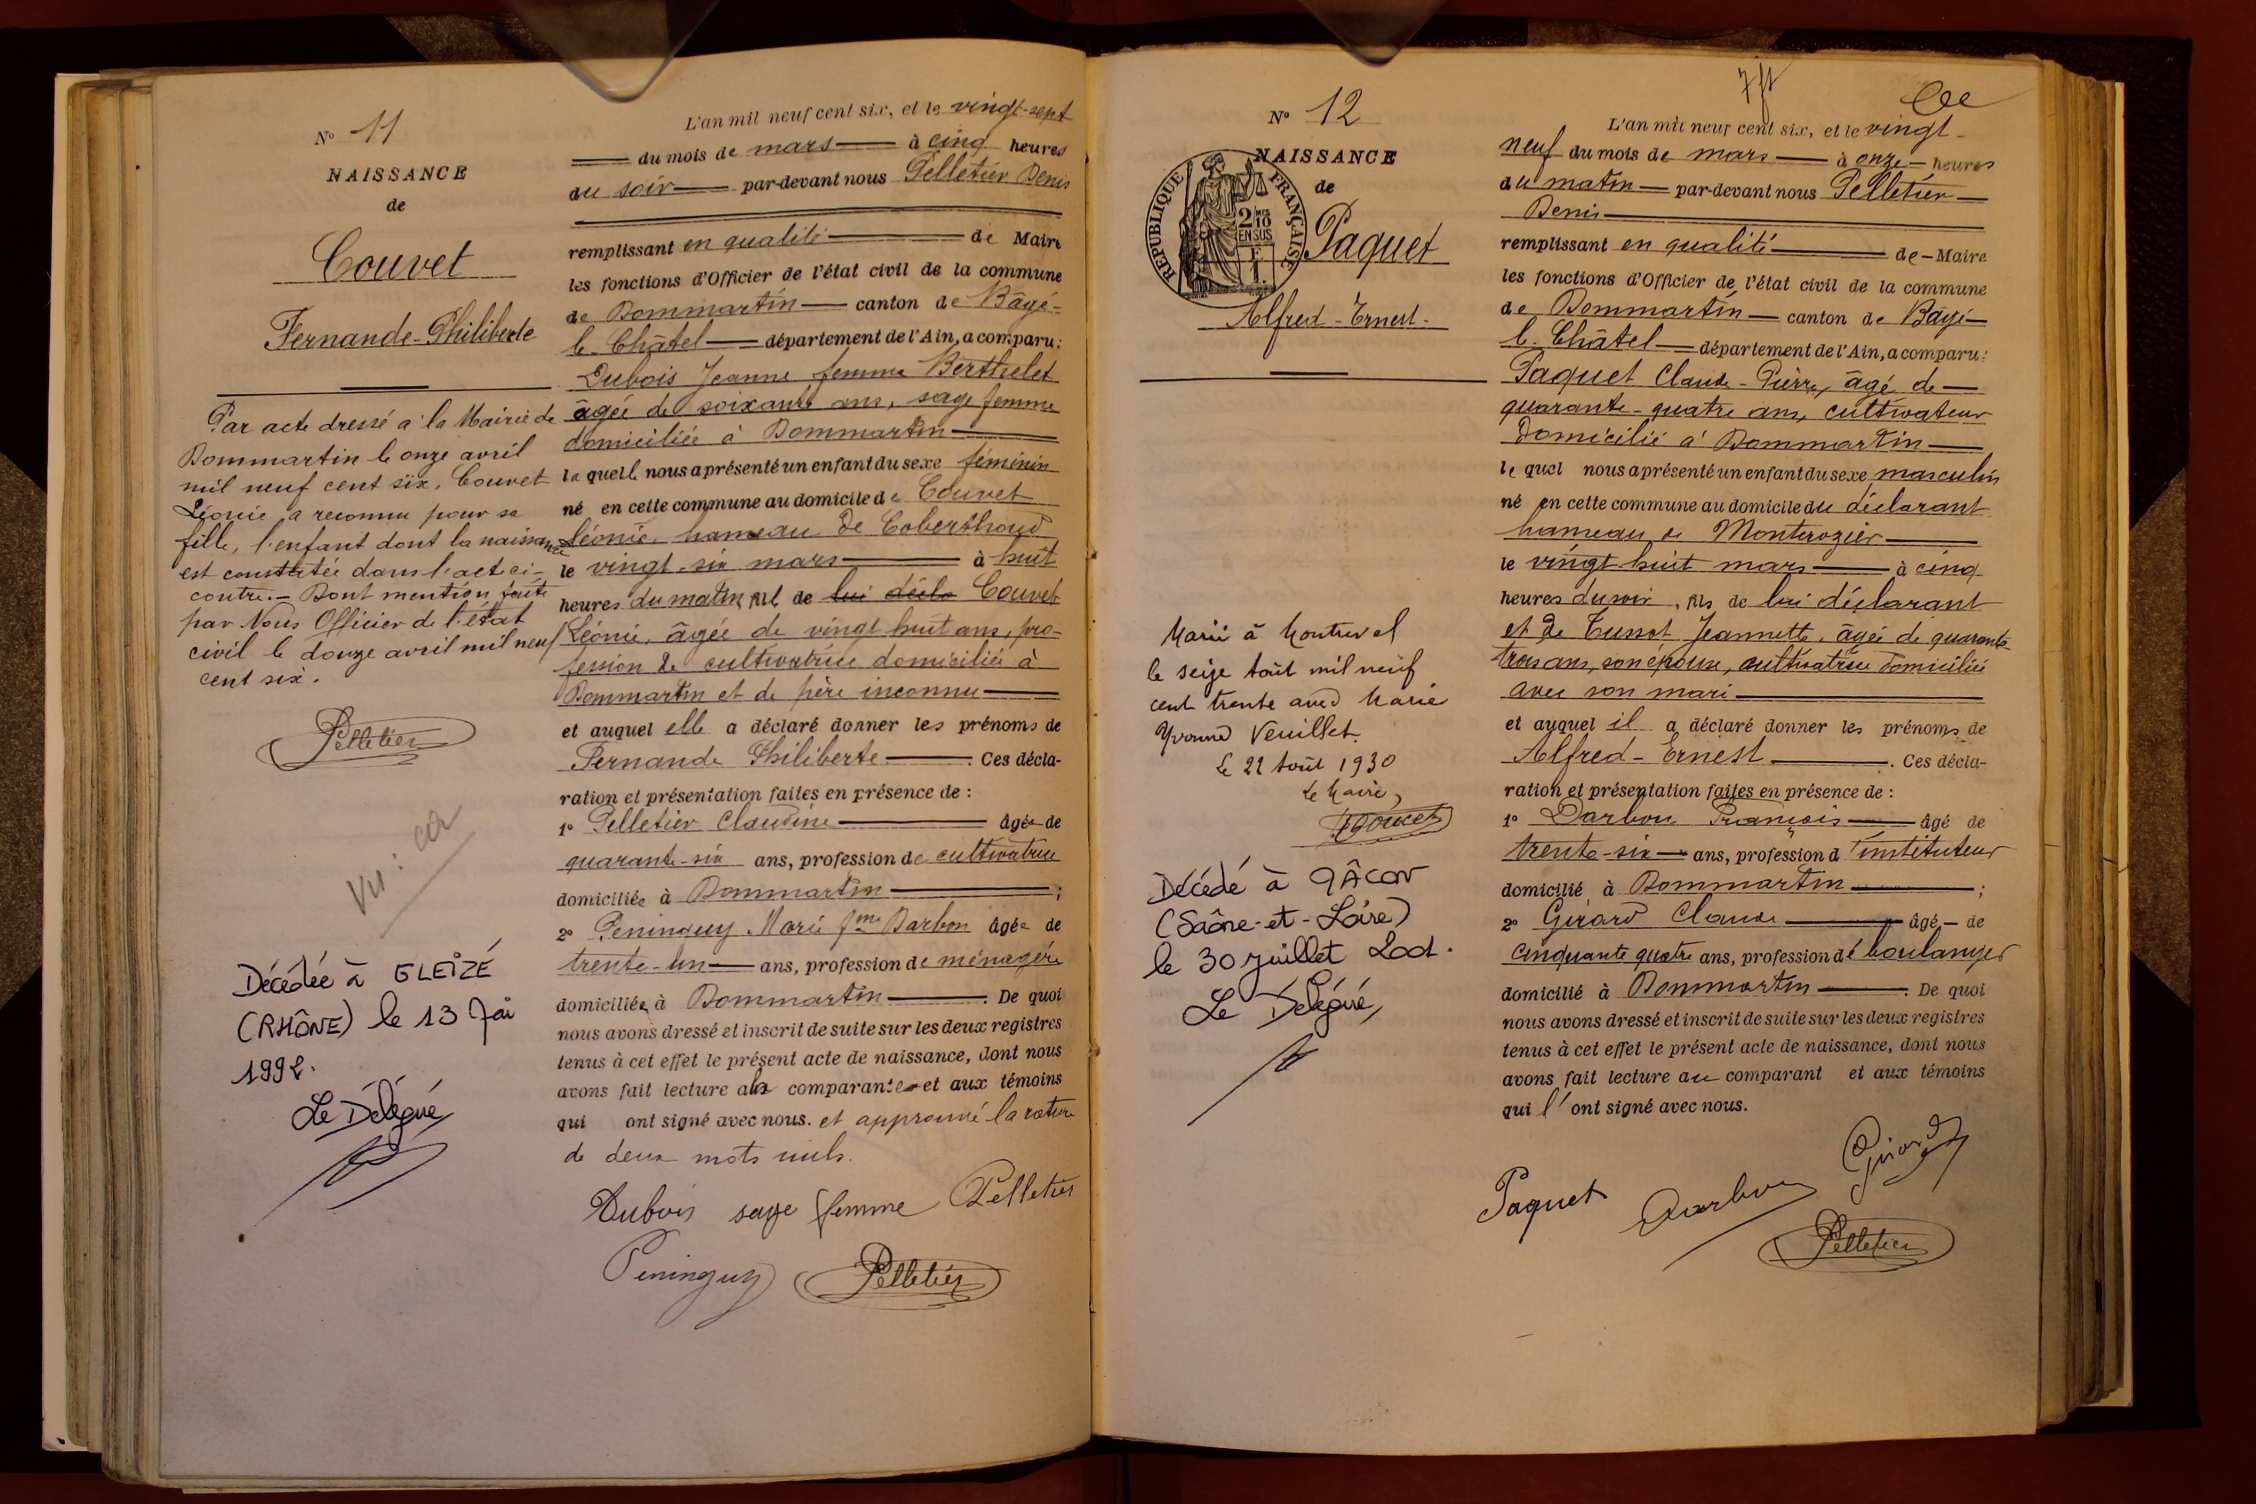 N° 11
NAISSANCE
de
Couvet
Fernande-Philiberte
Par acte dressé à la Mairie de
Dommartin le onze avril
mil neuf cent six, Couvet
Léonie a reconnu pour sa
fille, l'enfant dont la naissance
est constatée dans l'acte ci-
contre. — Dont mention faite
par Nous Officier de l'état
civil le douze avril mil neuf
cent six.
Pelletier
Vu :
Décédée à GLEIZÉ
(RHÔNE) le 13 Mai
1992.
Le Délégué
L'an mil neuf cent six, et le vingt-sept
du mois de mars à cinq heures
du soir par-devant nous Pelletier Denis
remplissant en qualité de Maire
les fonctions d'Officier de l'état civil de la commune
de Dommartin canton de Bâgé-
le Châtel département de l'Ain, a comparu :
Dubois Jeanne femme Berthelet
âgée de soixante ans, sage femme
domiciliée à Dommartin
laquelle nous a présenté un enfant du sexe féminin
né en cette commune au domicile de Couvet
Léonie hameau de Coberthoud
le vingt-six mars à huit
heures du matin, fil de lui décla Couvet
Léonie, âgée de vingt huit ans, pro-
fession de cultivatrice domiciliée à
Dommartin et de père inconnu
et auquel elle a déclaré donner les prénoms de
Fernande Philiberte. Ces décla-
ration et présentation faites en présence de :
1° Pelletier Claudine âgée de
quarante-six ans, profession de cultivatrice
domiciliée à Dommartin ;
2° Peninguy Marie fme Darbon âgée de
trente-un ans, profession de ménagère
domiciliée à Dommartin. De quoi
nous avons dressé et inscrit de suite sur les deux registres
tenus à cet effet le présent acte de naissance, dont nous
avons fait lecture à la comparante et aux témoins
qui ont signé avec nous. et approuvé la rature
de deux mots nuls.
Dubois sage femme Pelletier
Peninguy Pelletier
7
N° 12
NAISSANCE
de
RÉPUBLIQUE FRANÇAISE
2/10
EN SUS
Paquet
Alfred-Ernest-
Marié à Montrevel
le seize Août mil neuf
cent trente avec Marie
Yvonne Veuillet.
Le 22 Août 1930
Le Maire,
Décédé à MÂCON
(Saône-et-Loire)
le 30 juillet 2001.
Le Délégué,
L'an mil neuf cent six, et le vingt-
neuf du mois de mars à onze heures
du matin par-devant nous Pelletier
Denis
remplissant en qualité de Maire
les fonctions d'Officier de l'état civil de la commune
de Dommartin canton de Bâgé
le Châtel département de l'Ain, a comparu :
Paquet Claude-Pierre, âgé de
quarante-quatre ans, cultivateur
domicilié à Dommartin
lequel nous a présenté un enfant du sexe masculin
né en cette commune au domicile du déclarant
hameau de Monterozier
le vingt-huit mars à cinq
heures du soir, fils de lui déclarant
et de Tussot Jeannette, âgée de quarante
trois ans, son épouse, cultivatrice domiciliée
avec son mari
et auquel il a déclaré donner les prénoms de
Alfred-Ernest. Ces décla-
ration et présentation faites en présence de :
1° Darbon François âgé de
trente-six ans, profession d'instituteur
domicilié à Dommartin ;
2° Girard Claude âgé de
cinquante quatre ans, profession de boulanger
domicilié à Dommartin. De quoi
nous avons dressé et inscrit de suite sur les deux registres
tenus à cet effet le présent acte de naissance, dont nous
avons fait lecture au comparant et aux témoins
qui l'ont signé avec nous.
Girard
Paquet Darbon
Pelletier